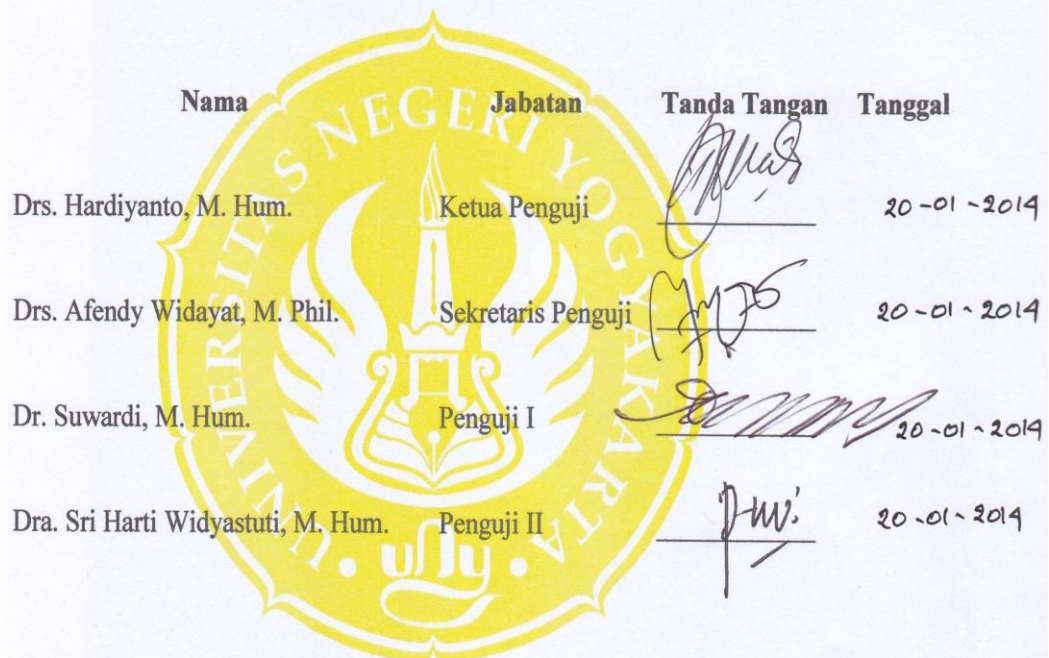 Nama Jabatan Tanda Tangan Tanggal
Drs. Hardiyanto, M. Hum. Ketua Penguji 20-01-2014
Drs. Afendy Widayat, M. Phil. Sekretaris Penguji 20-01-2014
Dr. Suwardi, M. Hum. Penguji I 20-01-2014
Dra. Sri Harti Widyastuti, M. Hum. Penguji II 20-01-2014
UNIVERSITAS NEGERI YOGYAKARTA
uny